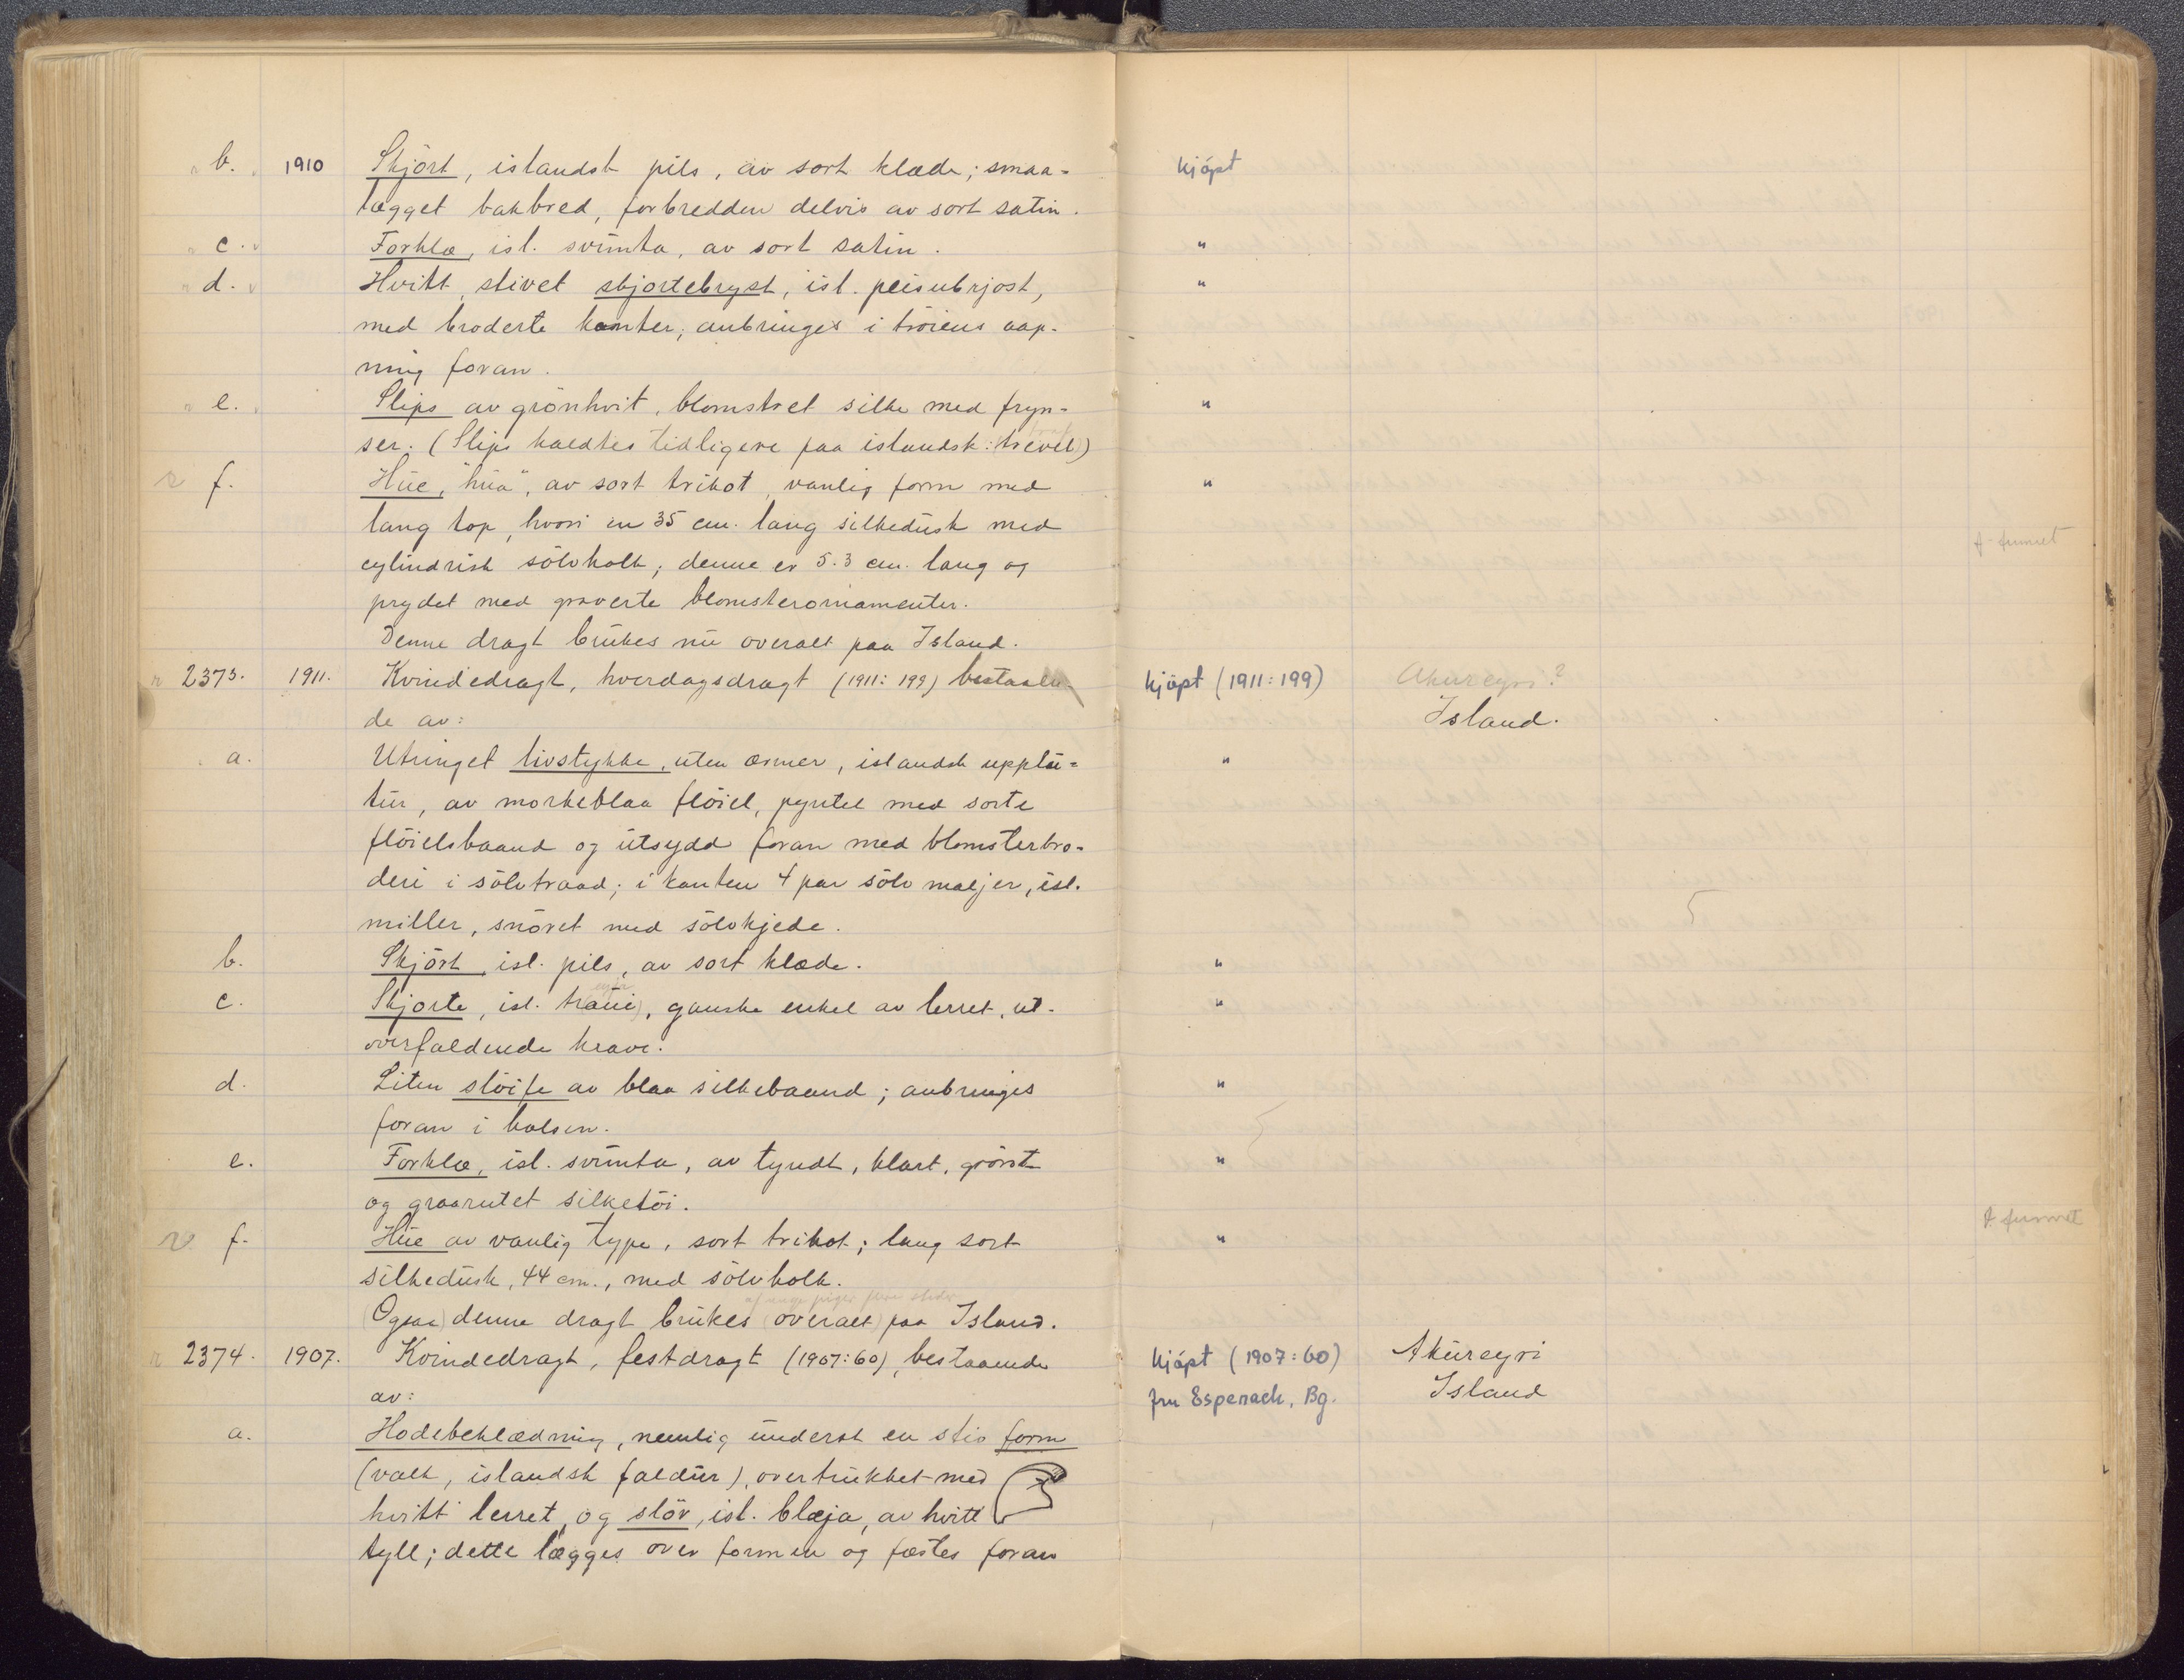 b. 1910 Skjört, islandsk pils, av sort klæde; smaa- kjöpt
lægget bakbred, forbredden delvis av sort satin.
c. Forklæ, isl. svunta, av sort satin. "
d. Hvitt, stivet skjortebryst, isl. peisubrjost, "
med broderte kanter; anbringes i tröiens aap-
ning foran.
e. Slips av grönhvit, blomstret silke med fryn- "
ser. (Slips kaldtes tidligere paa islandsk: trevel)
f. Hue, "hua", av sort trikot, vanlig form med "
lang top, hvori en 35 cm. lang silkedusk med
f funnet
cylindrisk sölvholk; denne er 5.3 cm. lang og
prydet med graverte blomsterornamenter.
Denne dragt brukes nu overalt paa Island.
2373. 1911. Kvindedragt, hverdagsdragt (1911: 199) bestaaen- kjöpt (1911:199) Akureyri?
de av: Island.
a. Utringet livstykke, uten ærmer, islandsk upplu- "
tur, av mörkeblaa flöiel, pyntet med sorte
flöielsbaand og utsydd foran med blomsterbro-
deri i sölvtraad; i kanten 4 par sölv maljer, isl.
miller, snöret med sölvkjede.
b. Skjört, isl. pils, av sort klæde. "
c. Skjorte, isl. , ganske enkel av lerret, ut- "
overfaldende krave.
d. Liten slöife av blaa silkebaand; anbringes "
foran i halsen.
e. Forklæ, isl. svunta, av tyndt, klart, grönt "
og graarutet silketöi.
f funnet
f. Hue av vanlig type, sort trikot; lang sort "
silkedusk, 44 cm., med sölvholk.
af unge piger flere steder
(Ogsaa) denne dragt brukes (overalt) paa Island.
2374. 1907. Kvindedragt, festdragt (1907:60), bestaaende kjöpt (1907:60) Akureyri
av: fru Espenach, Bg. Island
a. Hodebeklædning, nemlig underst en stiv form
(valk, islandsk faldur), overtrukket med
hvitt lerret, og slör, isl. blæja, av hvitt
tyll; dette lægges over formen og fæstes foran